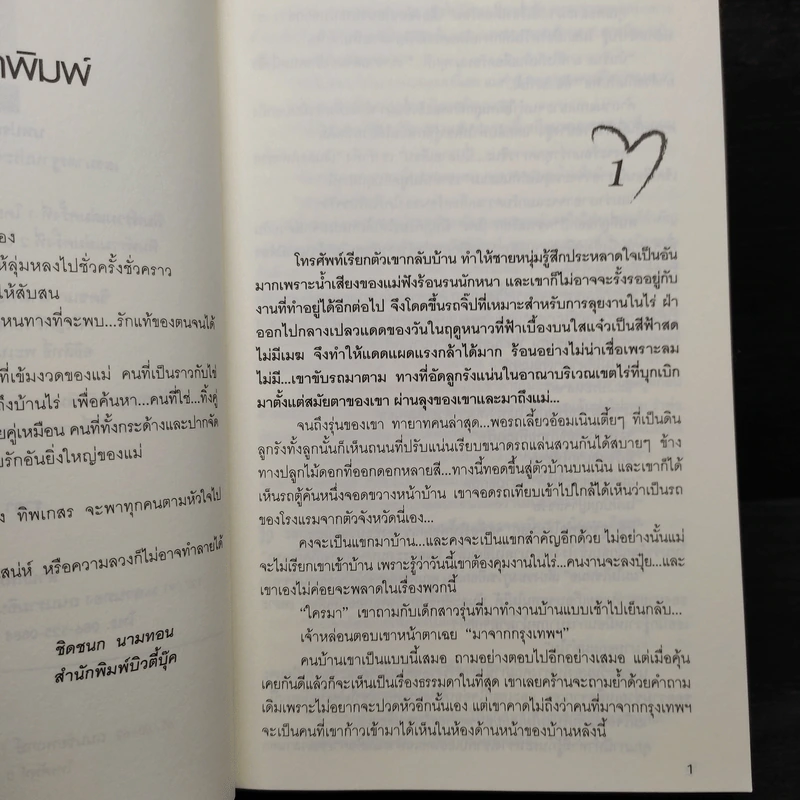 าพิมพ์
อง
ห้ลุ่มหลงไปชั่วครั้งชั่วคราว
ให้สับสน
หนทางที่จะพบ...รักแท้ของตนจนได้
ที่เข้มงวดของแม่ คนที่เป็นราวกับไข่
ถึงบ้านไร่ เพื่อค้นหา...คนที่ใช่...ทิ้งคู่
อยคู่เหมือน คนที่ทั้งกระด้างและปากจัด
ยรักอันยิ่งใหญ่ของแม่
ง ทิพเกสร จะพาทุกคนตามหัวใจไป
สน่ห์ หรือความลวงก็ไม่อาจทำลายได้
ชิดชนก นามทอน
สำนักพิมพ์บิวตี้บุ๊ค
1
โทรศัพท์เรียกตัวเขากลับบ้าน ทำให้ชายหนุ่มรู้สึกประหลาดใจเป็นอัน
มากเพราะน้ำเสียงของแม่ฟังร้อนรนนักหนา และเขาก็ไม่อาจจะรั้งรออยู่กับ
งานที่ทำอยู่ได้อีกต่อไป จึงโดดขึ้นรถจี๊ปที่เหมาะสำหรับการลุยงานในไร่ ฝ่า
ออกไปกลางเปลวแดดของวันในฤดูหนาวที่ฟ้าเบื้องบนใสแจ๋วเป็นสีฟ้าสด
ไม่มีเมฆ จึงทำให้แดดแผดแรงกล้าได้มาก ร้อนอย่างไม่น่าเชื่อเพราะลม
ไม่มี...เขาขับรถมาตาม ทางที่อัดลูกรังแน่นในอาณาบริเวณเขตไร่ที่บุกเบิก
มาตั้งแต่สมัยตาของเขา ผ่านลุงของเขาและมาถึงแม่...
จนถึงรุ่นของเขา ทายาทคนล่าสุด...พอรถเลี้ยวอ้อมเนินเตี้ยๆ ที่เป็นดิน
ลูกรังทั้งลูกนั้นก็เห็นถนนที่ปรับแน่นเรียบขนาดรถแล่นสวนกันได้สบายๆ ข้าง
ทางปลูกไม้ดอกที่ออกดอกหลายสี...ทางนี้ทอดขึ้นสู่ตัวบ้านบนเนิน และเขาก็ได้
เห็นรถตู้คันหนึ่งจอดขวางหน้าบ้าน เขาจอดรถเทียบเข้าไปใกล้ได้เห็นว่าเป็นรถ
ของโรงแรมจากตัวจังหวัดนี่เอง...
คงจะเป็นแขกมาบ้าน...และคงจะเป็นแขกสำคัญอีกด้วย ไม่อย่างนั้นแม่
จะไม่เรียกเขาเข้าบ้าน เพราะรู้ว่าวันนี้เขาต้องคุมงานในไร่...คนงานจะลงปุ๋ย...และ
เขาเองไม่ค่อยจะพลาดในเรื่องพวกนี้
“ใครมา” เขาถามกับเด็กสาวรุ่นที่มาทำงานบ้านแบบเช้าไปเย็นกลับ...
เจ้าหล่อนตอบเขาหน้าตาเฉย “มาจากกรุงเทพฯ”
คนบ้านเขาเป็นแบบนี้เสมอ ถามอย่างตอบไปอีกอย่างเสมอ แต่เมื่อคุ้น
เคยกันดีแล้วก็จะเห็นเป็นเรื่องธรรมดาในที่สุด เขาเลยคร้านจะถามย้ำด้วยคำถาม
เดิมเพราะไม่อยากจะปวดหัวอีกนั้นเอง แต่เขาคาดไม่ถึงว่าคนที่มาจากกรุงเทพฯ
จะเป็นคนที่เขาก้าวเข้ามาได้เห็นในห้องด้านหน้าของบ้านหลังนี้
1